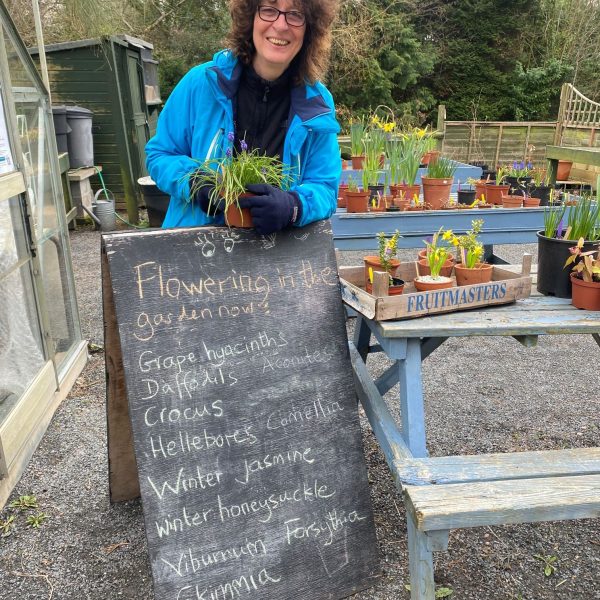 Flowering in the
garden now:
Grape hyacinths
Daffodils Aconites
Crocus
Hellebores Camellia
Winter Jasmine
Winter honeysuckle
Viburnum Forsythia
Skimmia
FRUITMASTERS